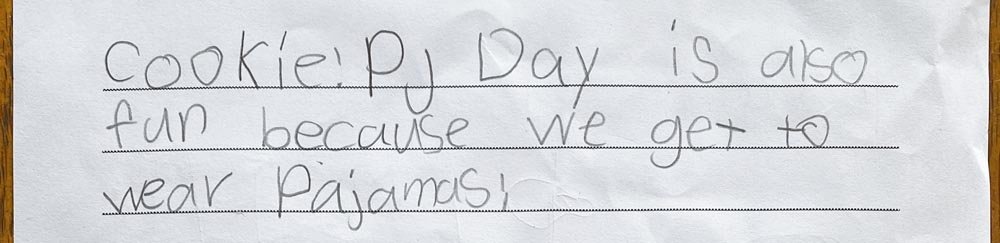 Cookie! PJ Day is also
fun because we get to
wear Pajamas!